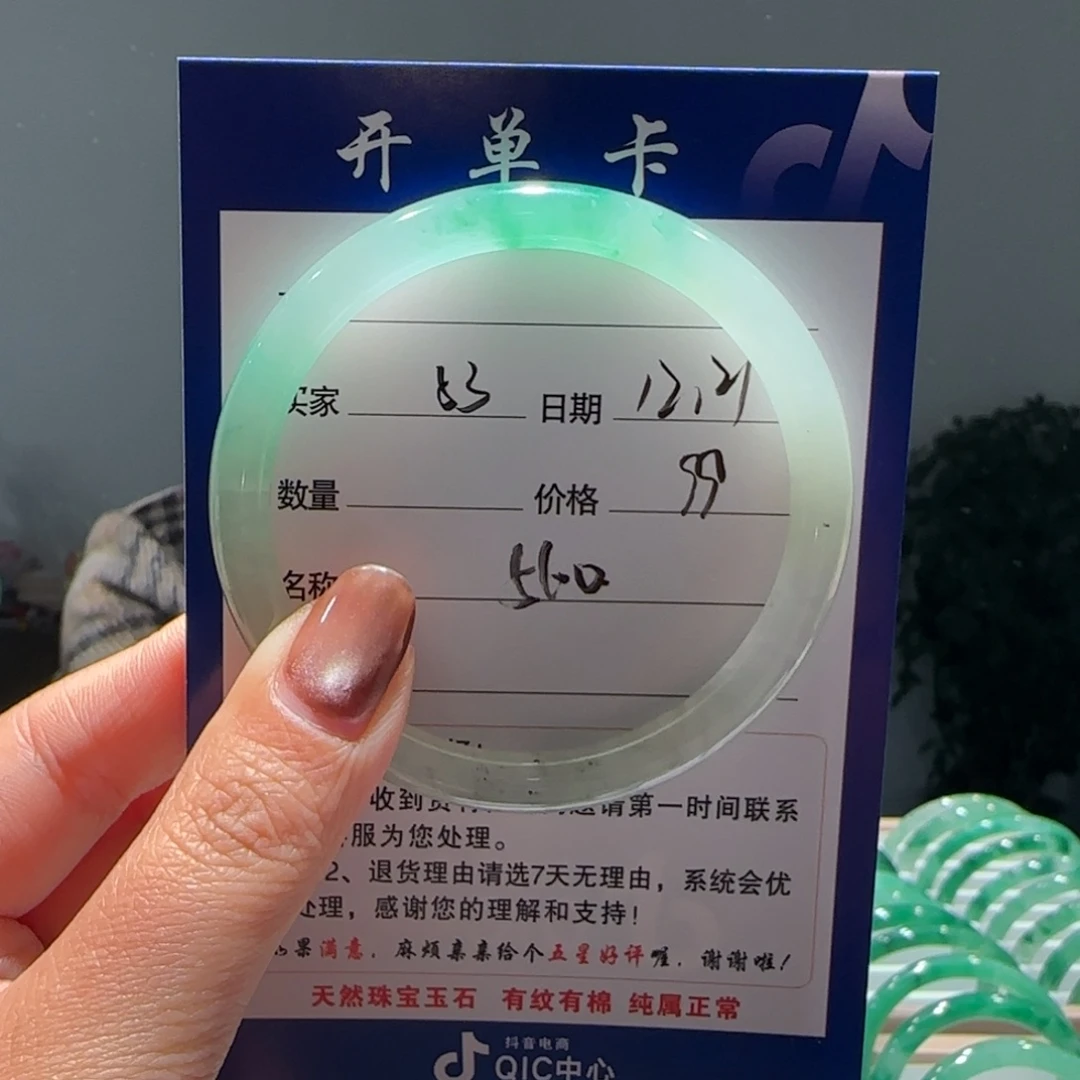 开单卡
买家 63 日期 12.21
数量 价格 99
名称
收到货 请第一时间联系
服为您处理。
2、退货理由请选7天无理由，系统会优
处理，感谢您的理解和支持！
果满意，麻烦亲亲给个五星好评喔，谢谢啦！
天然珠宝玉石 有纹有棉 纯属正常
抖音电商
QIC中心